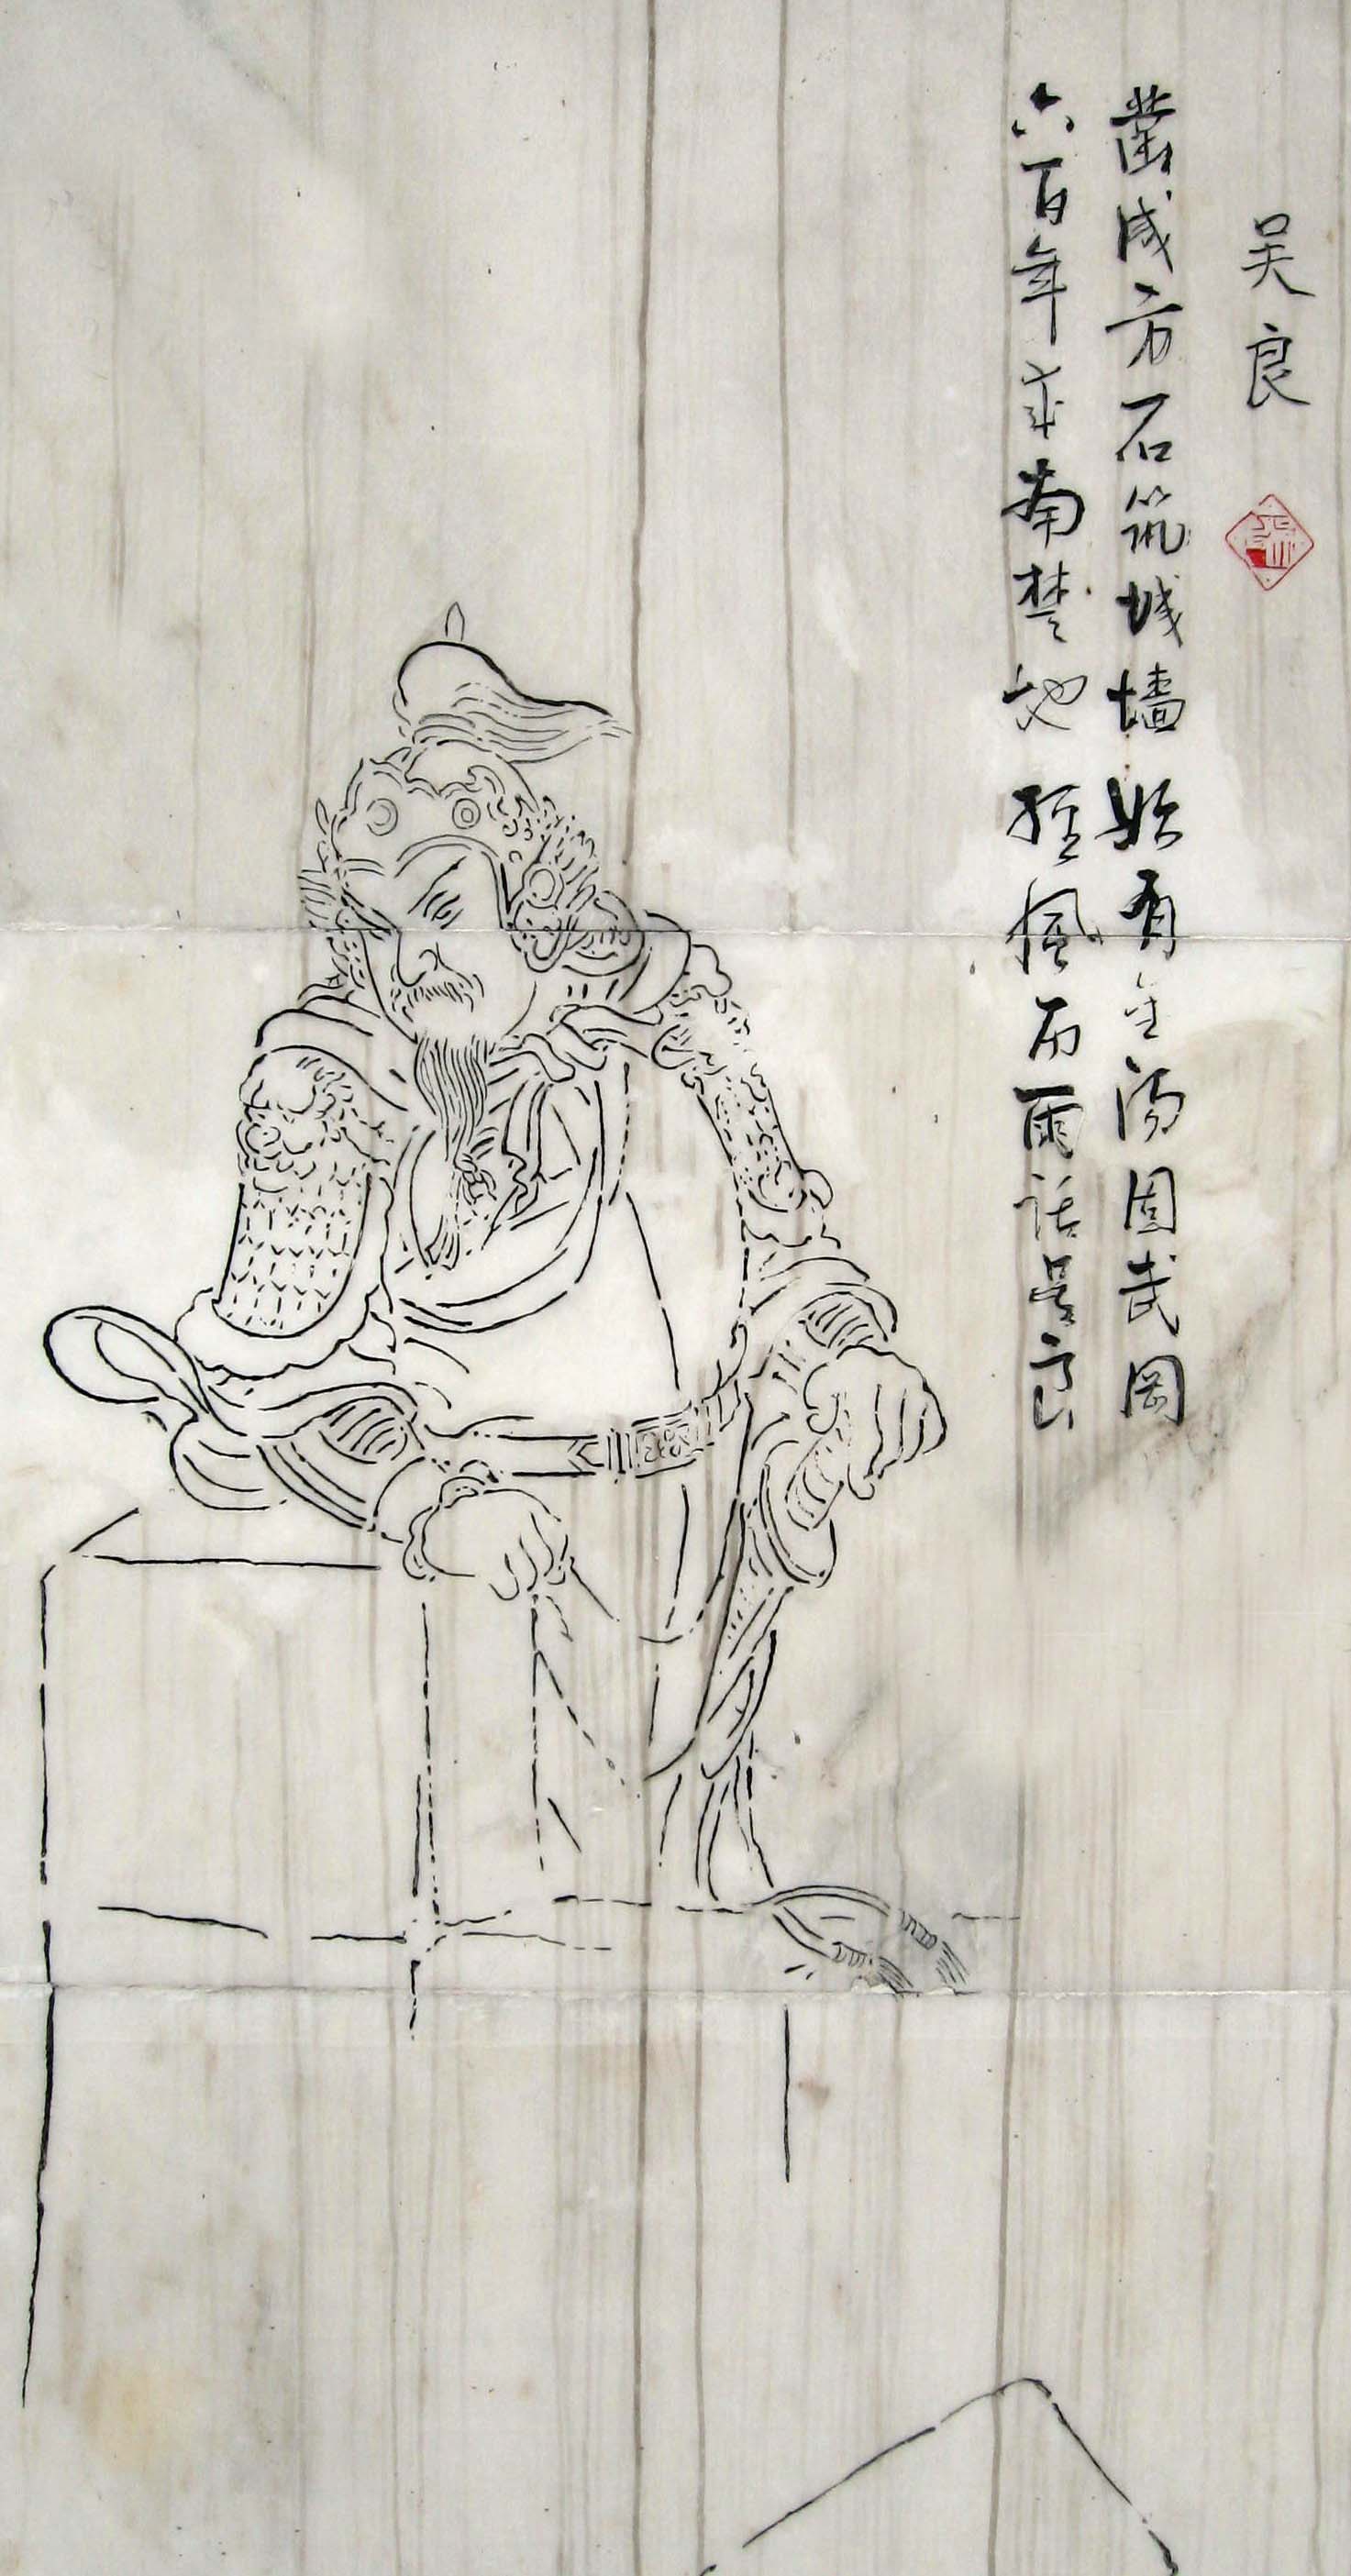 吴良
凿成方石筑城墙始有金汤固武冈
六百年来南楚地经风历雨话吴良